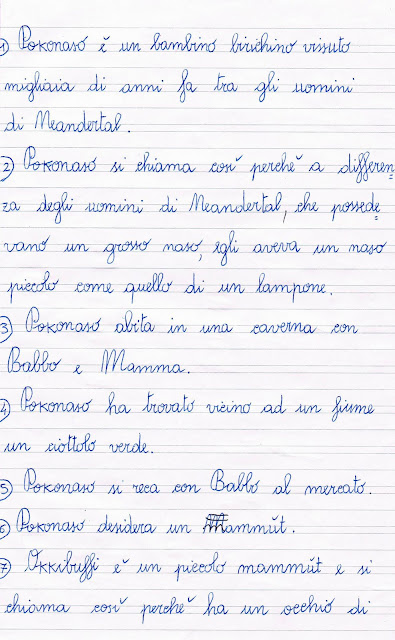 1) Pokonaso è un bambino birichino vissuto
migliaia di anni fa tra gli uomini
di Neandertal.
2) Pokonaso si chiama così perchè a differen
za degli uomini di Neandertal, che possede
vano un grosso naso, egli aveva un naso
piccolo come quello di un lampone.
3) Pokonaso abita in una caverna con
Babbo e Mamma.
4) Pokonaso ha trovato vicino ad un fiume
un ciottolo verde.
5) Pokonaso si reca con Babbo al mercato.
6) Pokonaso desidera un Mammùt.
7) Okkibuffi è un piccolo mammùt e si
chiama così perchè ha un occhio di